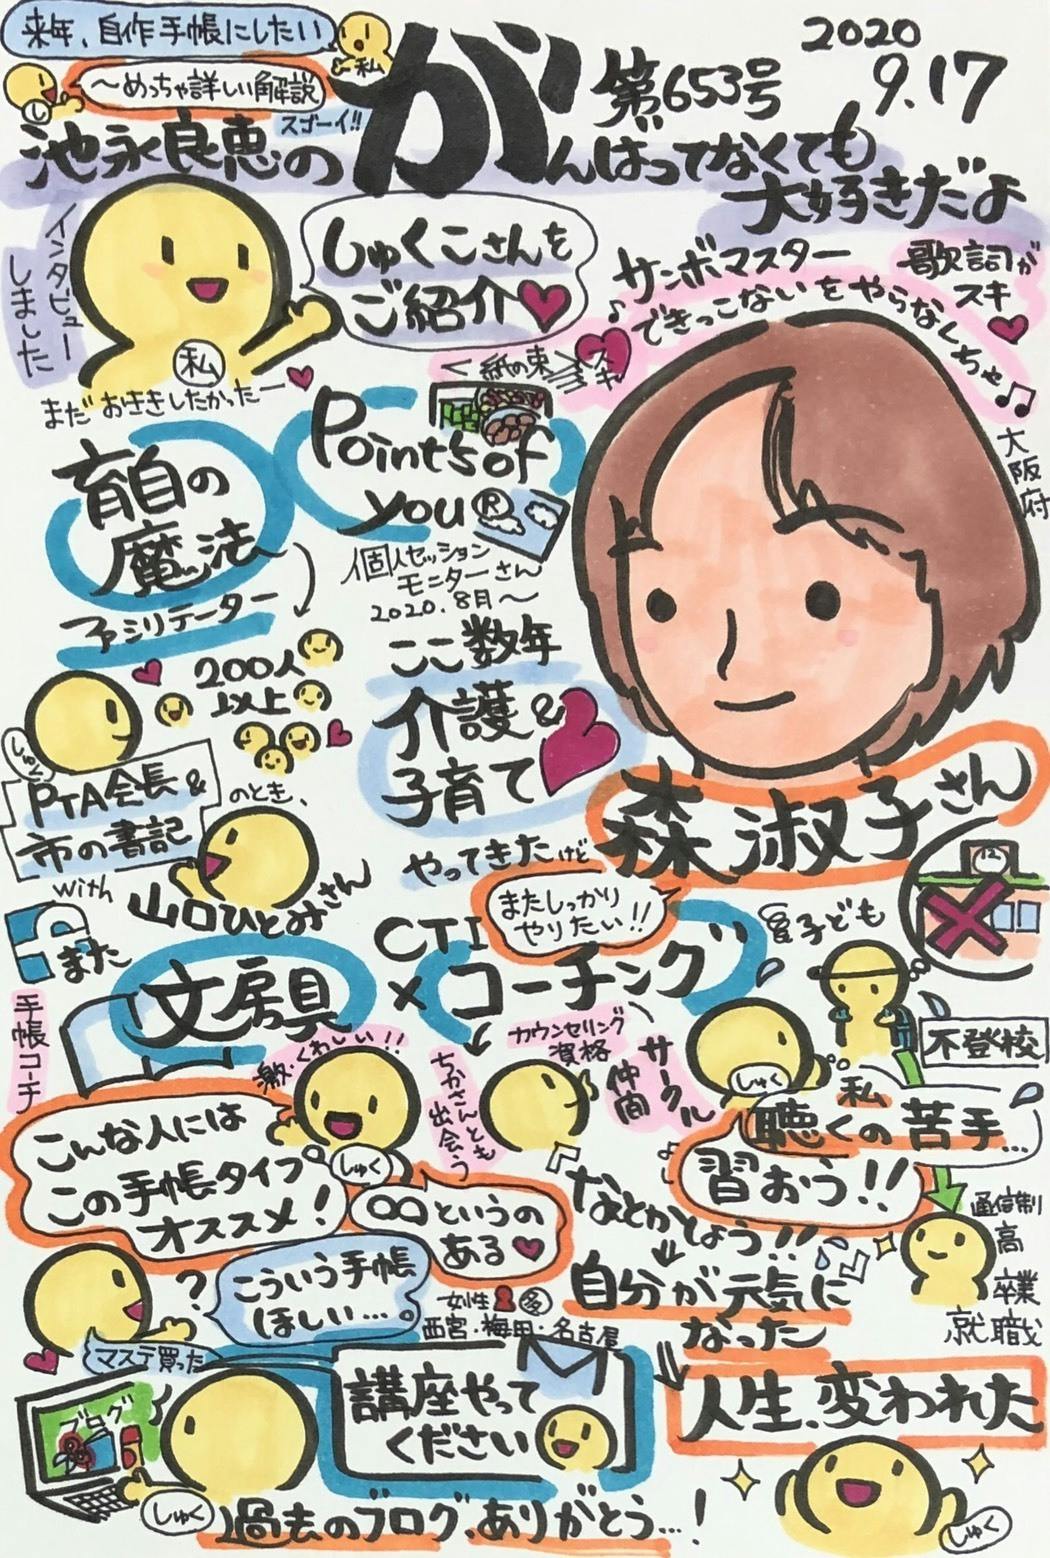 来年、自作手帳にしたい
私
〜めっちゃ詳しい解説
し
スゴーイ!!
第653号
2020
9.17
池永良恵の
がんばってなくても
大好きだよ
インタビュー
しました
しゅくこさんを
ご紹介
私
まだおききしたかったー
サンボマスター
歌詞が
スキ
できっこないをやらなくちゃ
紙の束
スキ
大阪府
育自の
魔法
ファシリテーター
Points of
you®
個人セッション
モニターさん
2020.8月〜
200人
以上
しゅく
PTA会長&
市の書記
のとき、
with
山口ひとみさん
ここ数年
介護&
子育て
やってきたけど
またしっかり
やりたい!!
森 淑子さん
12
子ども
不登校
また
文房具
手帳コーチ
激・くわしい!!
CTI
×コーチング
ちかさんとも
出会う
カウンセリング
資格
サークル
仲間
しゅく
私
聴くの苦手…
習おう!!
こんな人には
この手帳タイプ
オススメ!
しゅく
∞というの
ある
なんとかしよう!!
通信制
高
卒業
就職
自分が元気に
なった
?
こういう手帳
ほしい…。
マステ買った
女性 多
西宮・梅田・名古屋
講座やって
ください
人生、変われた
ブログ
しゅく
過去のブログ、ありがとう…!
しゅく